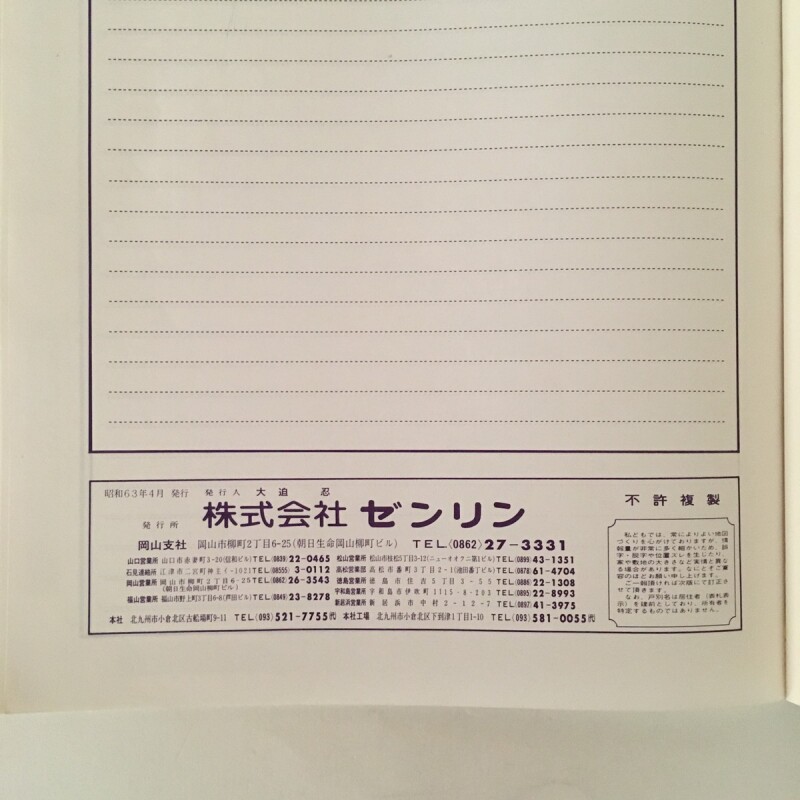 昭和63年4月 発行 発行人 大迫 忍
発行所 株式会社 ゼンリン
岡山支社 岡山市柳町2丁目6-25(朝日生命岡山柳町ビル) TEL(0862)27-3331
山口営業所 山口市赤妻町3-20(信和ビル)TEL(0839)22-0465 松山営業所 松山市枝松5丁目3-12(ニューオオクニ第1ビル)TEL(0899)43-1351
石見連絡所 江津市二宮町神主イ-1021 TEL(0855)3-0112 高松営業所 高松市番町3丁目2-1(池田番丁ビル)TEL(0878)61-4704
岡山営業所 岡山市柳町2丁目6-25 TEL(0862)26-3543 徳島営業所 徳島市住吉5丁目3-55 TEL(0886)22-1308
(朝日生命岡山柳町ビル) 宇和島営業所 宇和島市伊吹町1115-8-203 TEL(0895)22-8993
福山営業所 福山市野上町3丁目6-6(芦田ビル)TEL(0849)23-8278 新居浜営業所 新居浜市中村2-12-7 TEL(0897)41-3975
本社 北九州市小倉北区古船場町9-11 TEL(093)521-7755代 本社工場 北九州市小倉北区下到津1丁目1-10 TEL(093)581-0055代
不許複製
私どもでは、常によりよい地図
づくりを心がけておりますが、情
報量が非常に多く細かいため、誤
字・脱字や位置ズレを生じたり、
家や敷地の大きさなど実情と異な
る場合があります。なにとぞご寛
容のほどお願い申し上げます。
ご一報頂ければ次版にて訂正さ
せて頂きます。
なお、戸別名は居住者(表札表
示)を建前としており、所有者を
特定するものではありません。